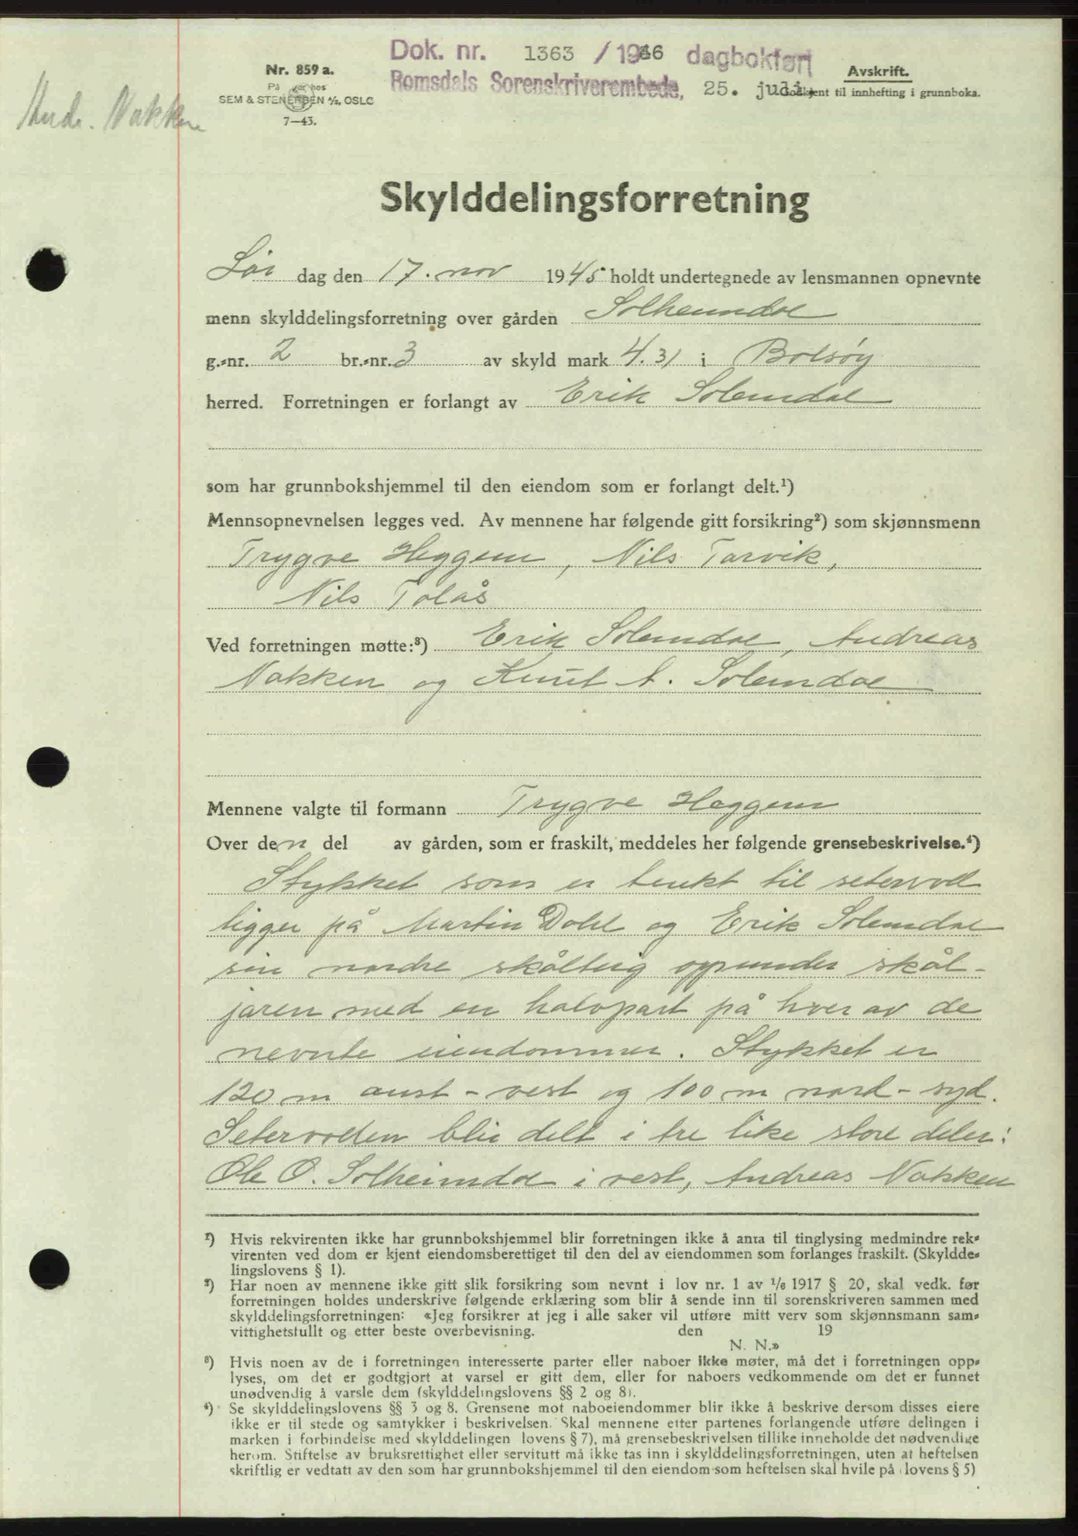 Dok. nr. 1363 / 1946 dagbokført
Romsdals Sorenskriverembede, 25. juli
Nr. 859 a.
På lager hos
SEM & STENERSEN A/S, OSLO
7—43.
Avskrift.
Godkjent til innhefting i grunnboka.
Andr. Nakken
Skylddelingsforretning
Lør dag den 17. nov 1945 holdt undertegnede av lensmannen opnevnte
menn skylddelingsforretning over gården Solheimdal
g.-nr. 2 br.-nr. 3 av skyld mark 4.31 i Bolsøy
herred. Forretningen er forlangt av Erik Solemdal
som har grunnbokshjemmel til den eiendom som er forlangt delt.¹)
Mennsopnevnelsen legges ved. Av mennene har følgende gitt forsikring²) som skjønnsmenn
Trygve Heggem, Nils Tarvik,
Nils Tolås
Ved forretningen møtte:³) Erik Solemdal, Andreas
Nakken og Knut A. Solemdal
Mennene valgte til formann Trygve Heggem
Over den del av gården, som er fraskilt, meddeles her følgende grensebeskrivelse.⁴)
Stykket som er tenkt til setervoll
ligger på Martin Dahl og Erik Solemdal
sin nordre skålteig oppunder skål-
jaren med en halvpart på hver av de
nevnte eiendommer. Stykket er
120 m aust - vest og 100 m nord - syd.
Setervollen blir delt i tre like store deler:
Ole O. Solheimdal i vest, Andreas Nakken
¹) Hvis rekvirenten ikke har grunnbokshjemmel blir forretningen ikke å anta til tinglysing medmindre rek-
virenten ved dom er kjent eiendomsberettiget til den del av eiendommen som forlanges fraskilt. (Skyldde-
lingslovens § 1).
²) Har noen av mennene ikke gitt slik forsikring som nevnt i lov nr. 1 av 1/6 1917 § 20, skal vedk. før
forretningen holdes underskrive følgende erklæring som blir å sende inn til sorenskriveren sammen med
skylddelingsforretningen: «Jeg forsikrer at jeg i alle saker vil utføre mitt verv som skjønnsmann sam-
vittighetsfullt og etter beste overbevisning. den 19
N. N.»
³) Hvis noen av de i forretningen interesserte parter eller naboer ikke møter, må det i forretningen opp-
lyses, om det er godtgjort at varsel er gitt dem, eller for naboers vedkommende om det er funnet
unødvendig å varsle dem (skylddelingslovens §§ 2 og 8).
⁴) Se skylddelingslovens §§ 3 og 8. Grensene mot naboeiendommer blir ikke å beskrive dersom disses eiere
ikke er til stede og samtykker i beskrivelsen. Skal mennene etter partenes forlangende utføre delingen i
marken i forbindelse med skylddelingen lovens § 7), må grensebeskrivelsen tillike inneholde det nødvendige
herom. Stiftelse av bruksrettighet eller servitutt må ikke tas inn i skylddelingsforretningen, uten at heftelsen
skriftlig er vedtatt av den som har grunnbokshjemmel til den eiendom som heftelsen skal hvile på (lovens § 5)